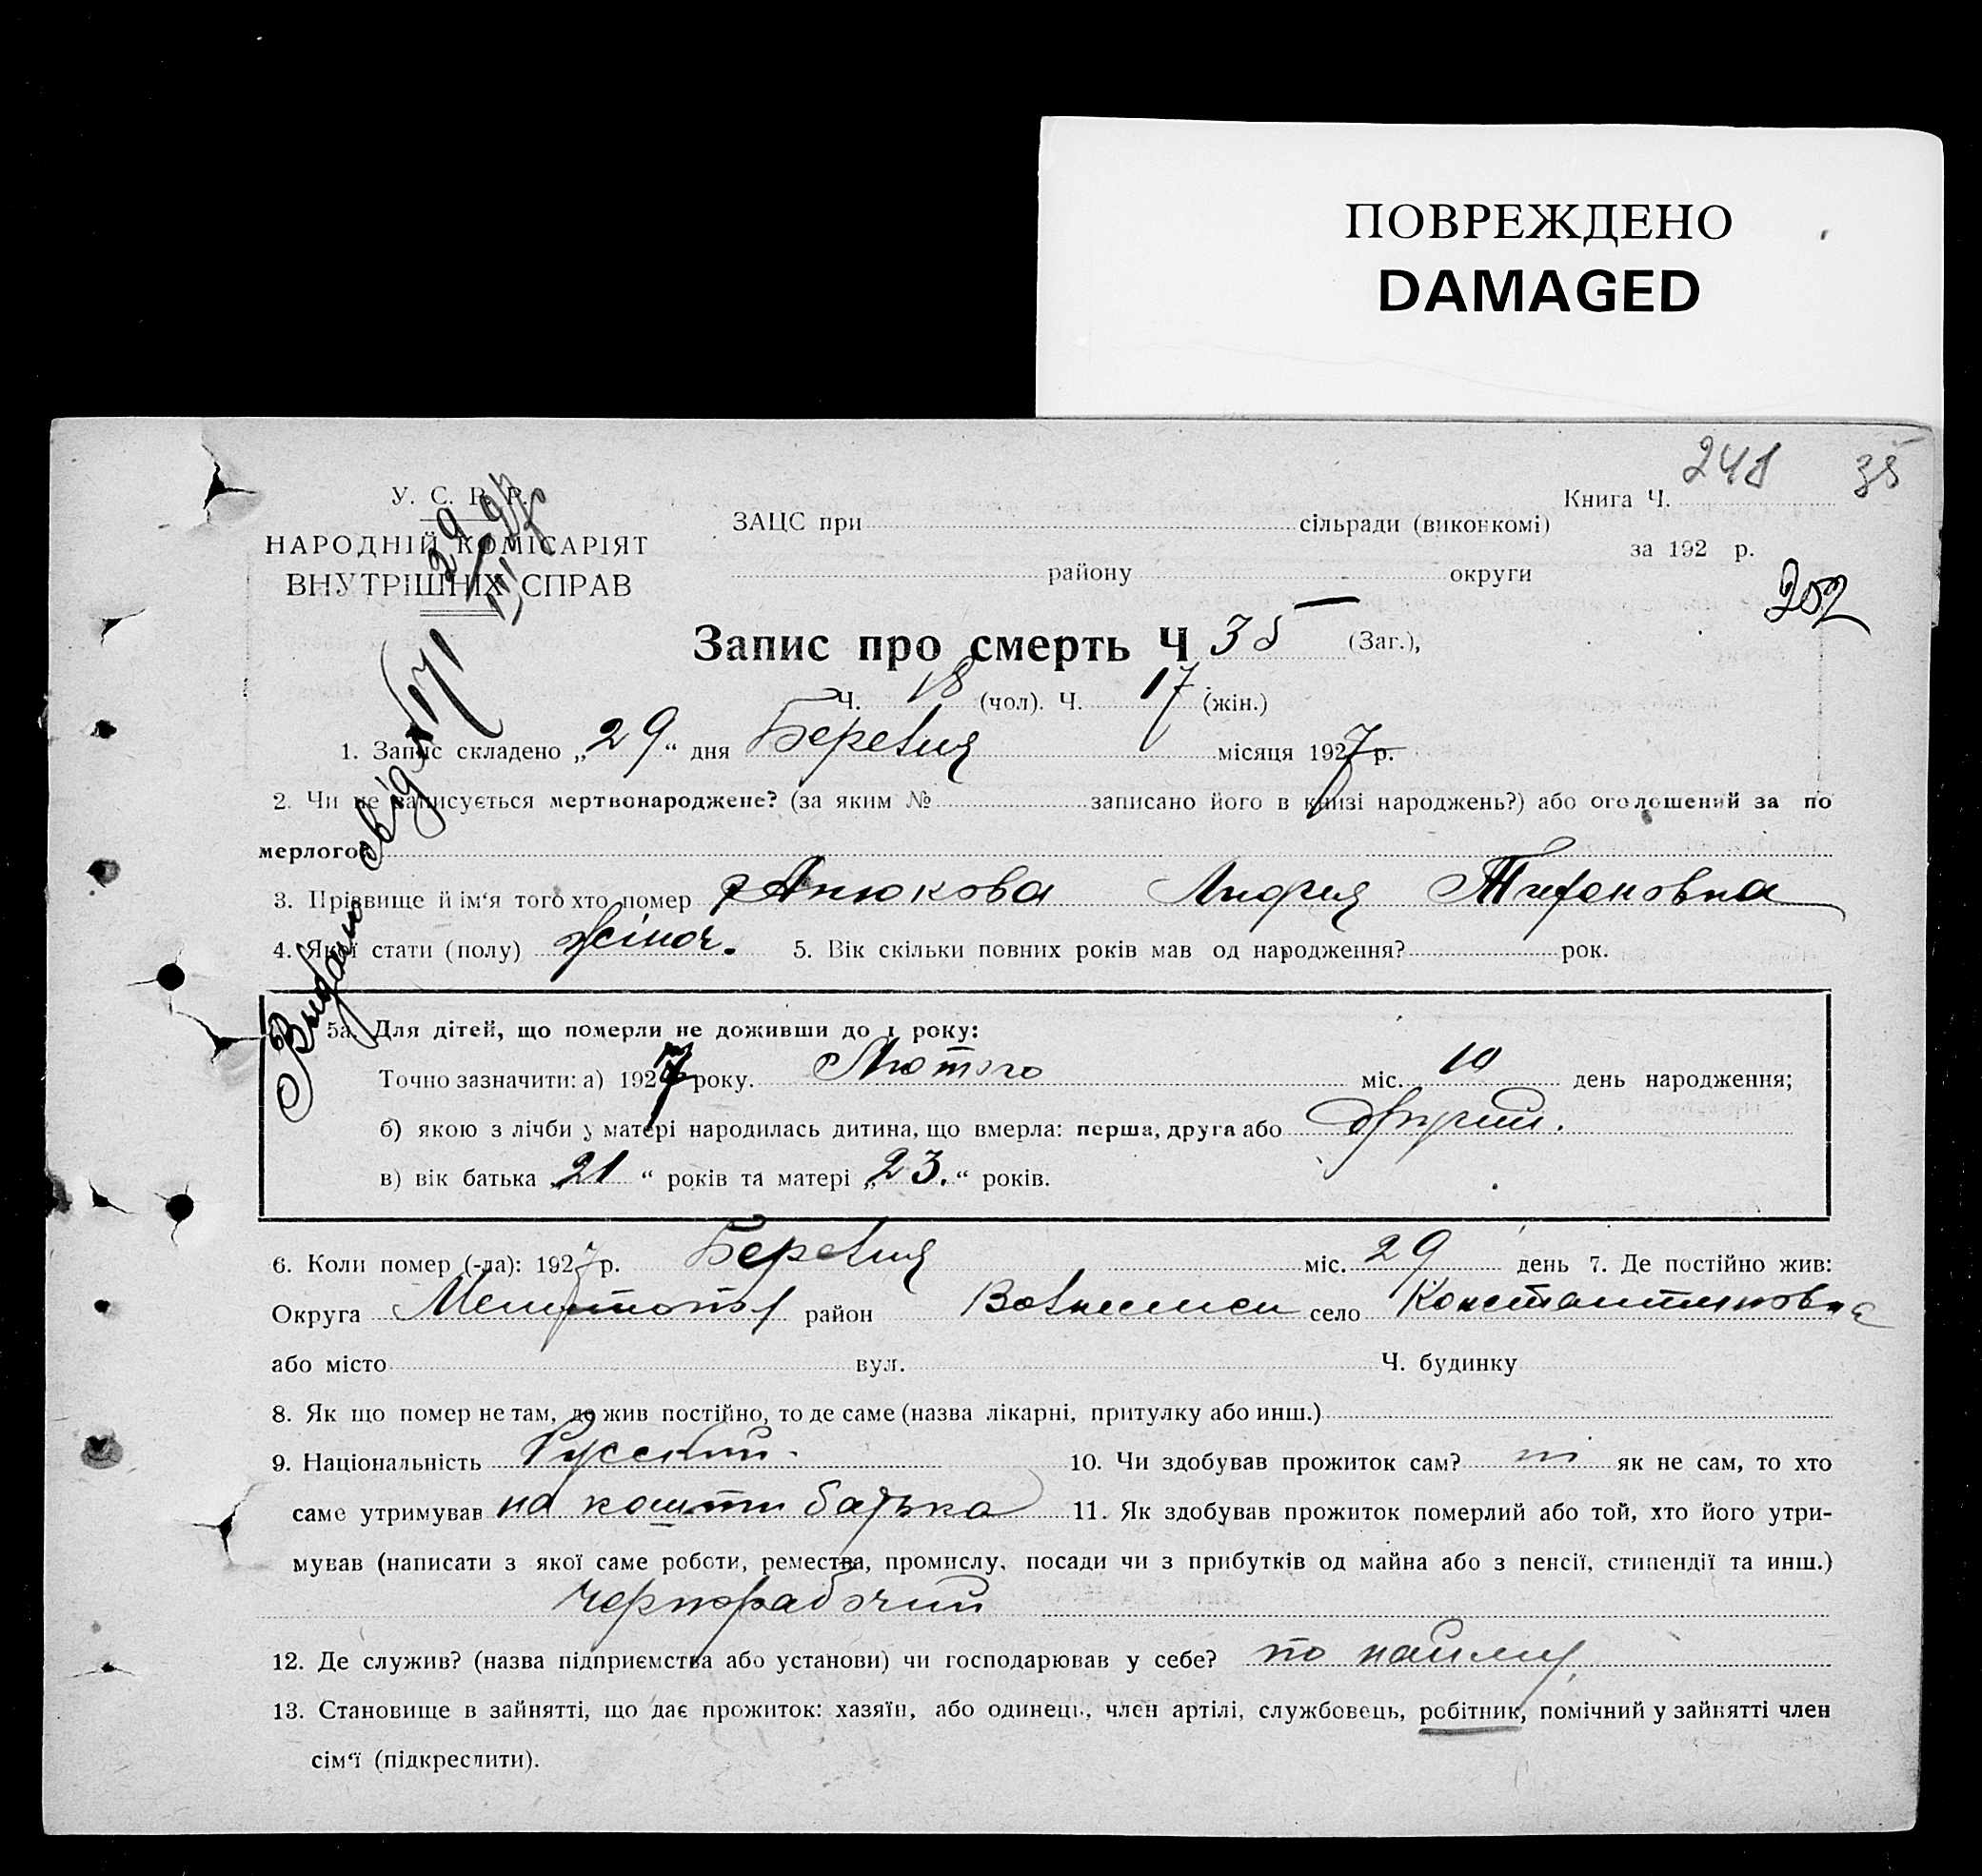 ПОВРЕЖДЕНО
DAMAGED
248 35
У. С. Р. Р.
НАРОДНІЙ КОМІСАРІЯТ
ВНУТРІШНІХ СПРАВ
ЗАЦС при сільради (виконкомі)
району округи
Книга Ч.
за 192 р.
202
Запис про смерть Ч 35 (Заг.),
Ч. 18 (чол). Ч. 17 (жін.)
Видано свід 171
1. Запис складено „29“ дня Березня місяця 1927 р.
2. Чи не записується мертвонароджене? (за яким № записано його в книзі народжень?) або оголошений за по
мерлого?
3. Прізвище й ім‘я того хто помер Анюкова
4. Якої стати (полу) жіноч. 5. Вік скільки повних років мав од народження? рок.
5а. Для дітей, що померли не доживши до 1 року:
Точно зазначити: а) 1927 року. Лютого міс. 10 день народження;
б) якою з лічби у матері народилась дитина, що вмерла: перша, друга або
в) вік батька „21“ років та матері „23.“ років.
6. Коли помер (-ла): 1927 р. Березня міс. 29 день 7. Де постійно жив:
Округа район село Константиновка
або місто вул. Ч. будинку
8. Як що помер не там, де жив постійно, то де саме (назва лікарні, притулку або инш.)
9. Національність Русский. 10. Чи здобував прожиток сам? ні як не сам, то хто
саме утримував на кошти батька 11. Як здобував прожиток померлий або той, хто його утри-
мував (написати з якої саме роботи, ремества, промислу, посади чи з прибутків од майна або з пенсії, стипендії та инш.)
чернорабочий
12. Де служив? (назва підприємства або установи) чи господарював у себе? по найму
13. Становище в зайнятті, що дає прожиток: хазяїн, або одинець, член артілі, службовець, робітник, помічний у зайнятті член
сім‘ї (підкреслити).